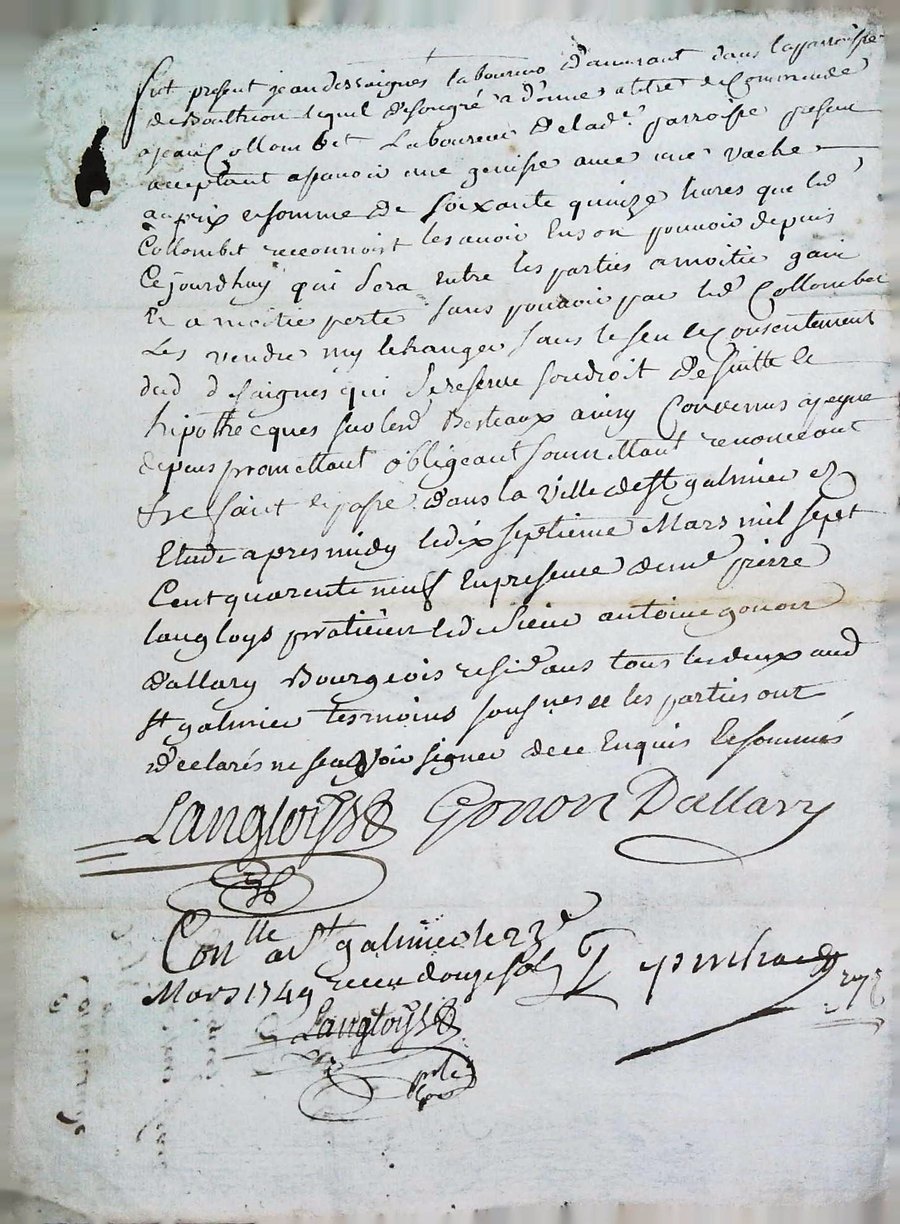 fut present jean dessaignes laboureur d'aveurant dans la parroisse
de Boultrion lequel de son gré a donné a titre de Commende
a jean Collombet Laboureur de lade. parroisse present
acceptant a savoir une genisse avec une vache
au prix et somme de soixante quinze livres que led
Collombet reconnoist les avoir en son pouvoir depuis
Cejourdhuy qui sera entre les parties a moitié gain
et a moitie perte sans pouvoir par led Collombet
les vendre ny échanger sans le seu le Consentement
dud dessaignes qui se reserve son droit de suitte le
hipothecques sur lesd Bestaux ainsy Convenus a peyne
depens promettant obligeant soumettant renonceant
fre fait et passé dans la Ville de st galmier et
Etude apres midy le dix septieme Mars mil sept
Cent quarente neuf En presence de me pierre
langloys praticien et de sieur antoine gonon
dallary Bourgeois residans tous les deux aud
st galmier tesmoins sousnes et les parties ont
declarés ne scavoir signer de ce Enquis et sommés
Langloys Gonon Dallary
Conlle a st galmier le 23e
Mars 1749 receu douze sols
Langloys